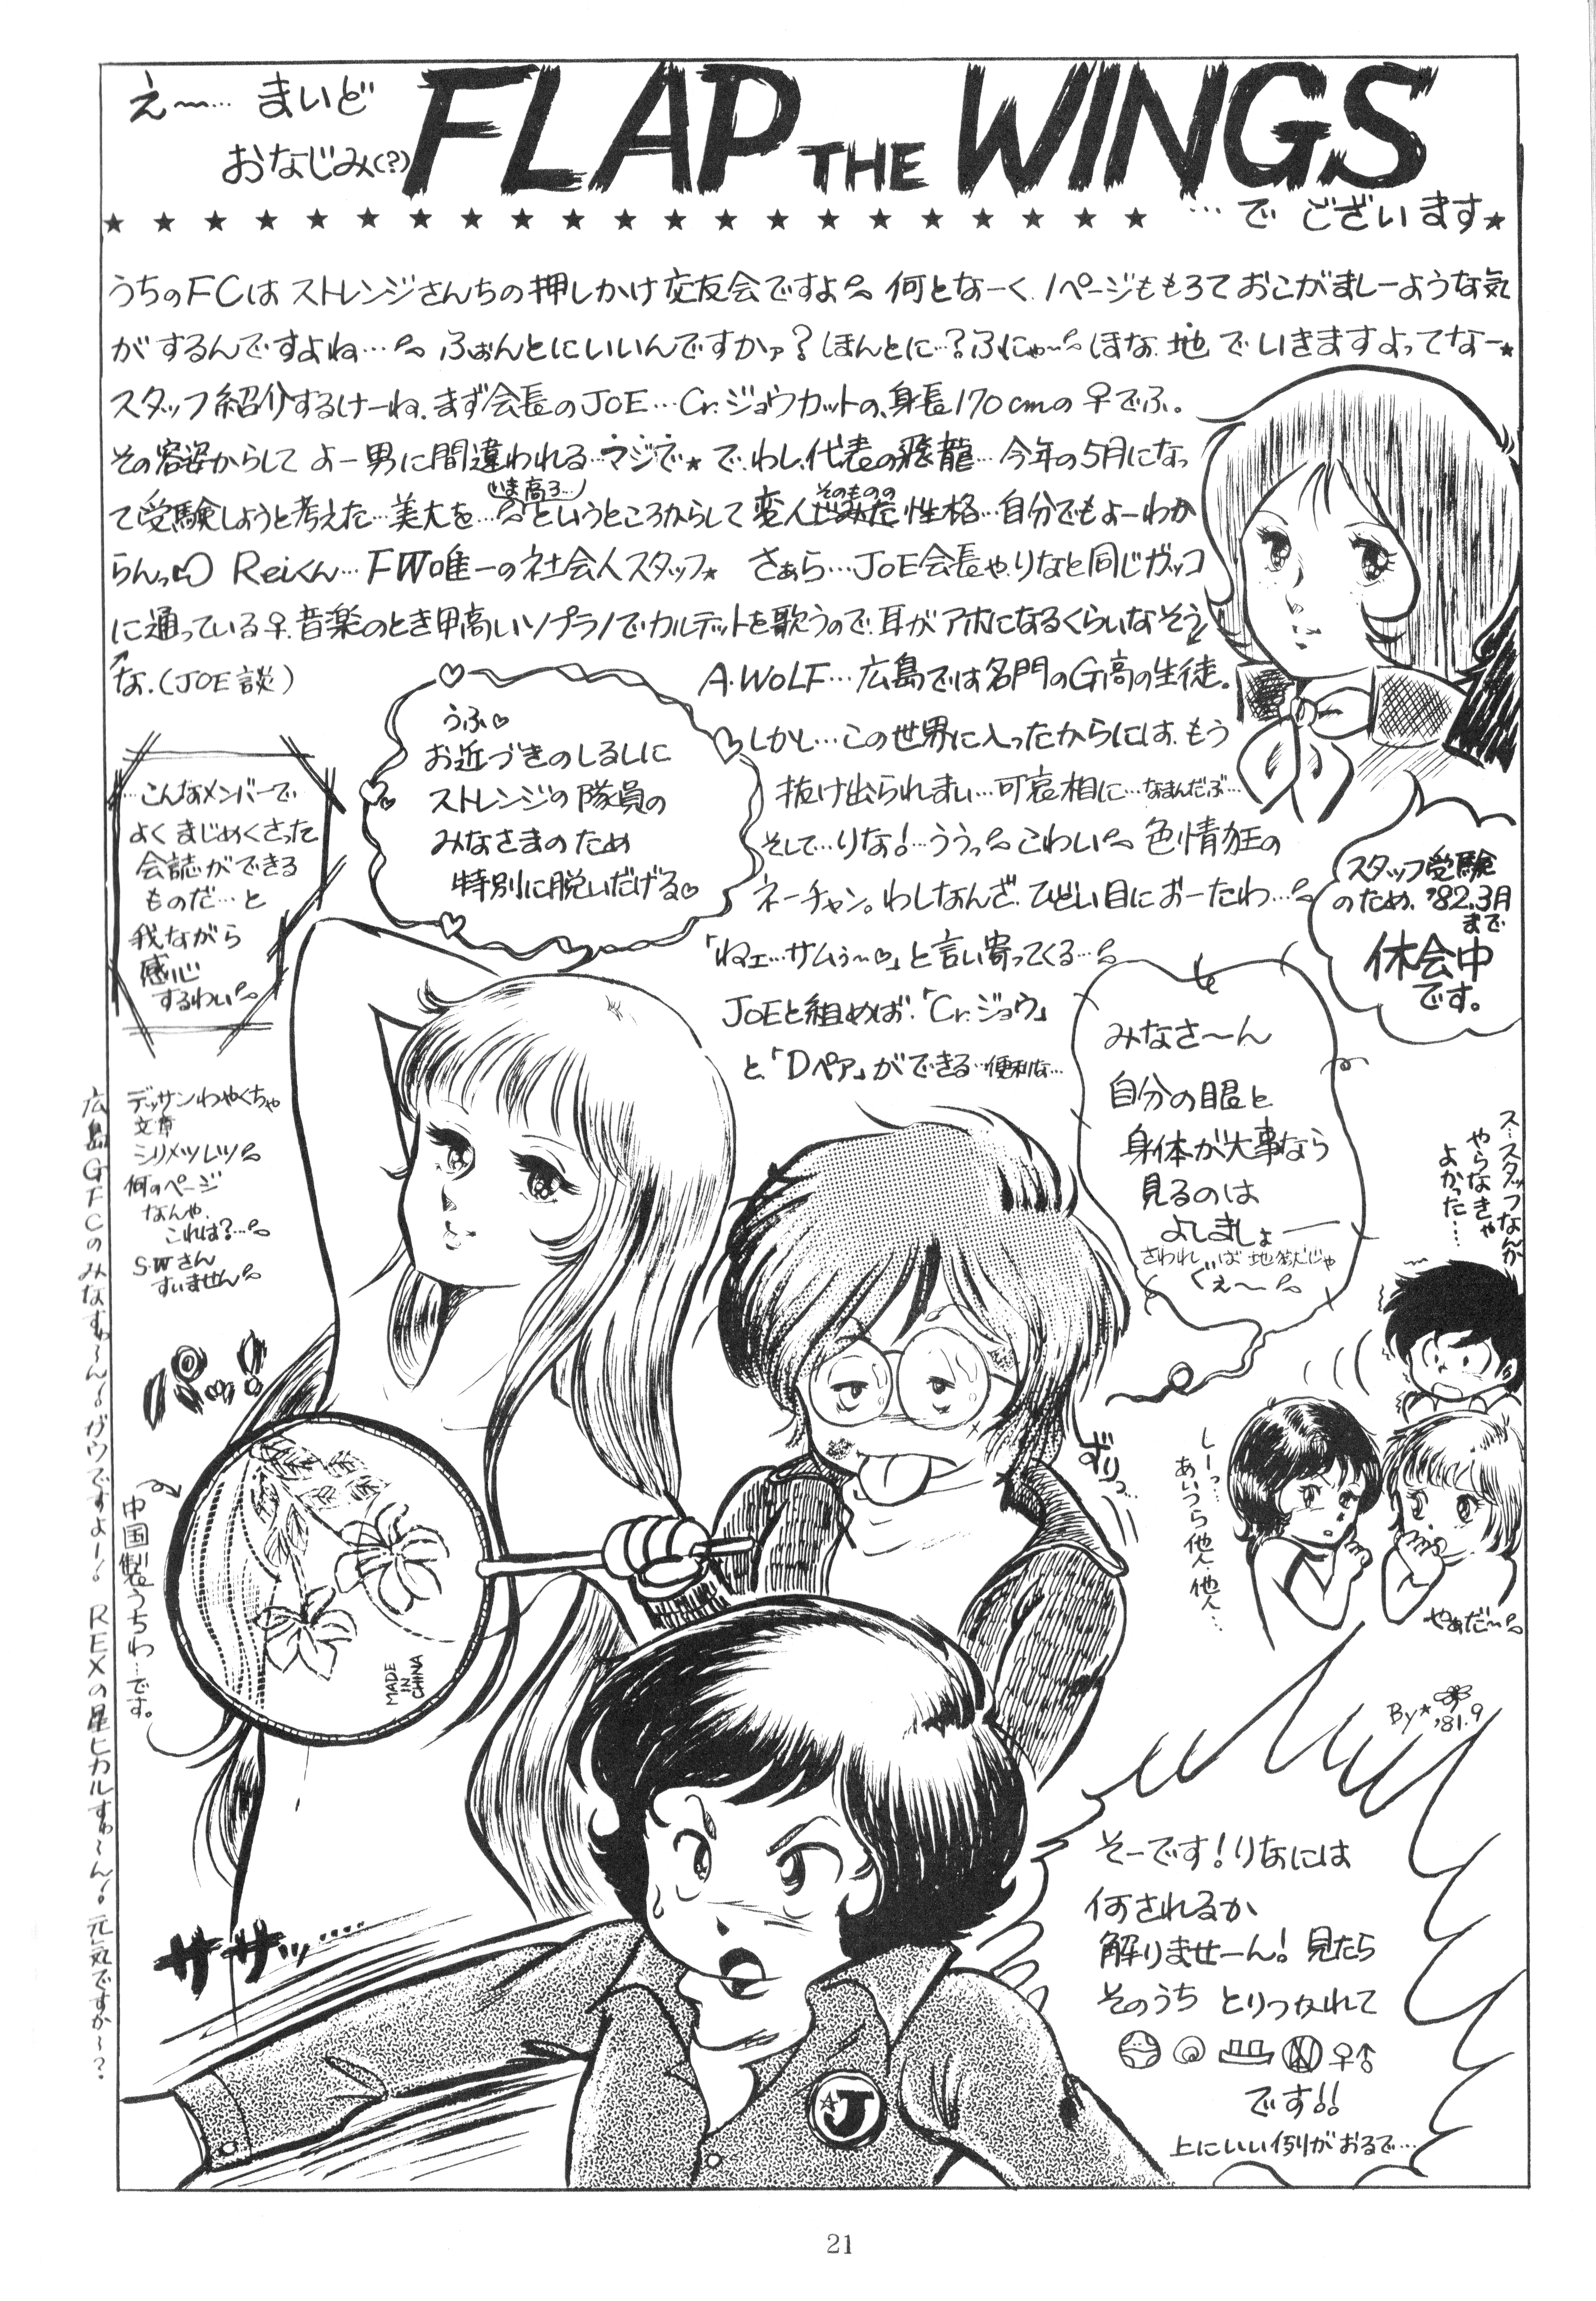 え〜… まいど
おなじみ(?)
FLAP THE WINGS
…で ございます★
うちのFCは ストレンジさんちの押しかけ交友会ですよ。何となーく、1ページももろて おこがましーような気
がするんですよね… ふぉんとにいいんですかァ?ほんとに…?ふにゃ〜 ほな、地でいきますよってなー★
スタッフ紹介するけーね、まず会長のJOE…Cr.ジョウカットの、身長170cmの♀でふ。
その容姿からして よー男に間違われる…マジで★ で、わし、代表の飛龍…今年の5月になっ
て受験しようと考えた…美大を…(いま高3…)というところからして変人そのものの性格…自分でもよーわか
らんっ Reiくん…FW唯一の社会人スタッフ★ さぁら…JOE会長や、りなと同じガッコ
に通っている♀、音楽のとき甲高いソプラノでカルテットを歌うので、耳がアホになるくらいなそう
な、(JOE談)
A.WOLF…広島では名門のG高の生徒。
しかし…この世界に入ったからには、もう
抜け出られまい…可哀相に…なまんだぶ…
そして…りな!…ううっ こわい 色情狂の
ネーチャン。わしなんざ、ひどい目におーたわ…
「ねェ…サムぅ〜♡」と言い寄ってくる…
JOEと組めば、「Cr.ジョウ」
と、「Dペア」ができる…便利な…
うふ♡
お近づきのしるしに
ストレンジの隊員の
みなさまのため
特別に脱いだげる♡
…こんなメンバーで
よく まじめくさった
会誌ができる
ものだ…と
我ながら
感心
するわい
スタッフ受験
のため、'82.3月
まで
休会中
です。
みなさ〜ん
自分の眼と
身体が大事なら
見るのは
よしましょー
さわれ…ば 地獄じゃ
ぐぇ〜
デッサンわやくちゃ
文章
シリメツレツ
何のページ
なんや、
これは?…
S・Wさん
すいません
広島GFCのみなすゎ〜ん!ガウですよー! REXの星ヒカルすゎ〜ん!元気ですか〜?
ス…スタッフなんか
やらなきゃ
よかった…
パッ!
中国製うちわ…です。
MADE
IN
CHINA
ずりっ…
しーっ…
あいつら他人、他人…
やぁだ〜
By★
'81.9
ササッ……
J
そーです!りなには
何されるか
解りませーん!見たら
そのうち とりつかれて
♀♂
です!!
上にいい例がおるで…
21